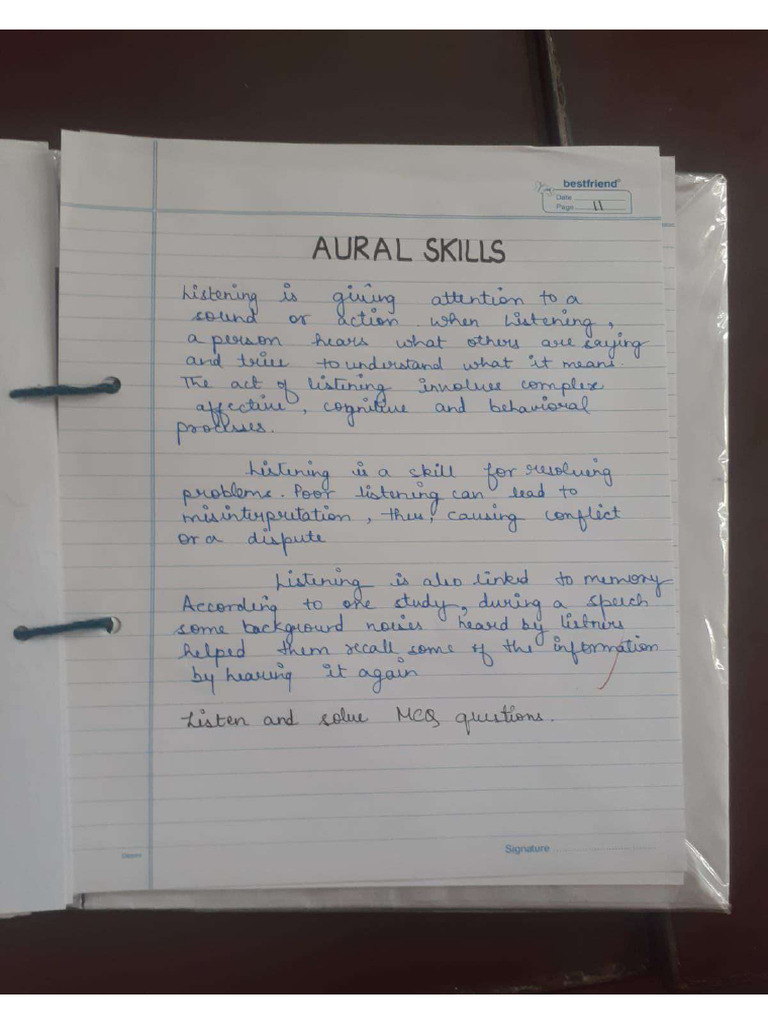 bestfriend
Date
Page 11
AURAL SKILLS
Listening is giving attention to a
sound or action. When listening,
a person hears what others are saying
and tries to understand what it means.
The act of listening involves complex
affective, cognitive and behavioral
processes.
Listening is a skill for resolving
problems. Poor listening can lead to
misinterpretation, thus, causing conflict
or a dispute
Listening is also linked to memory
According to one study, during a speech
some background noises heard by listners
helped them recall some of the information
by hearing it again
Listen and solve MCQ questions.
Signature